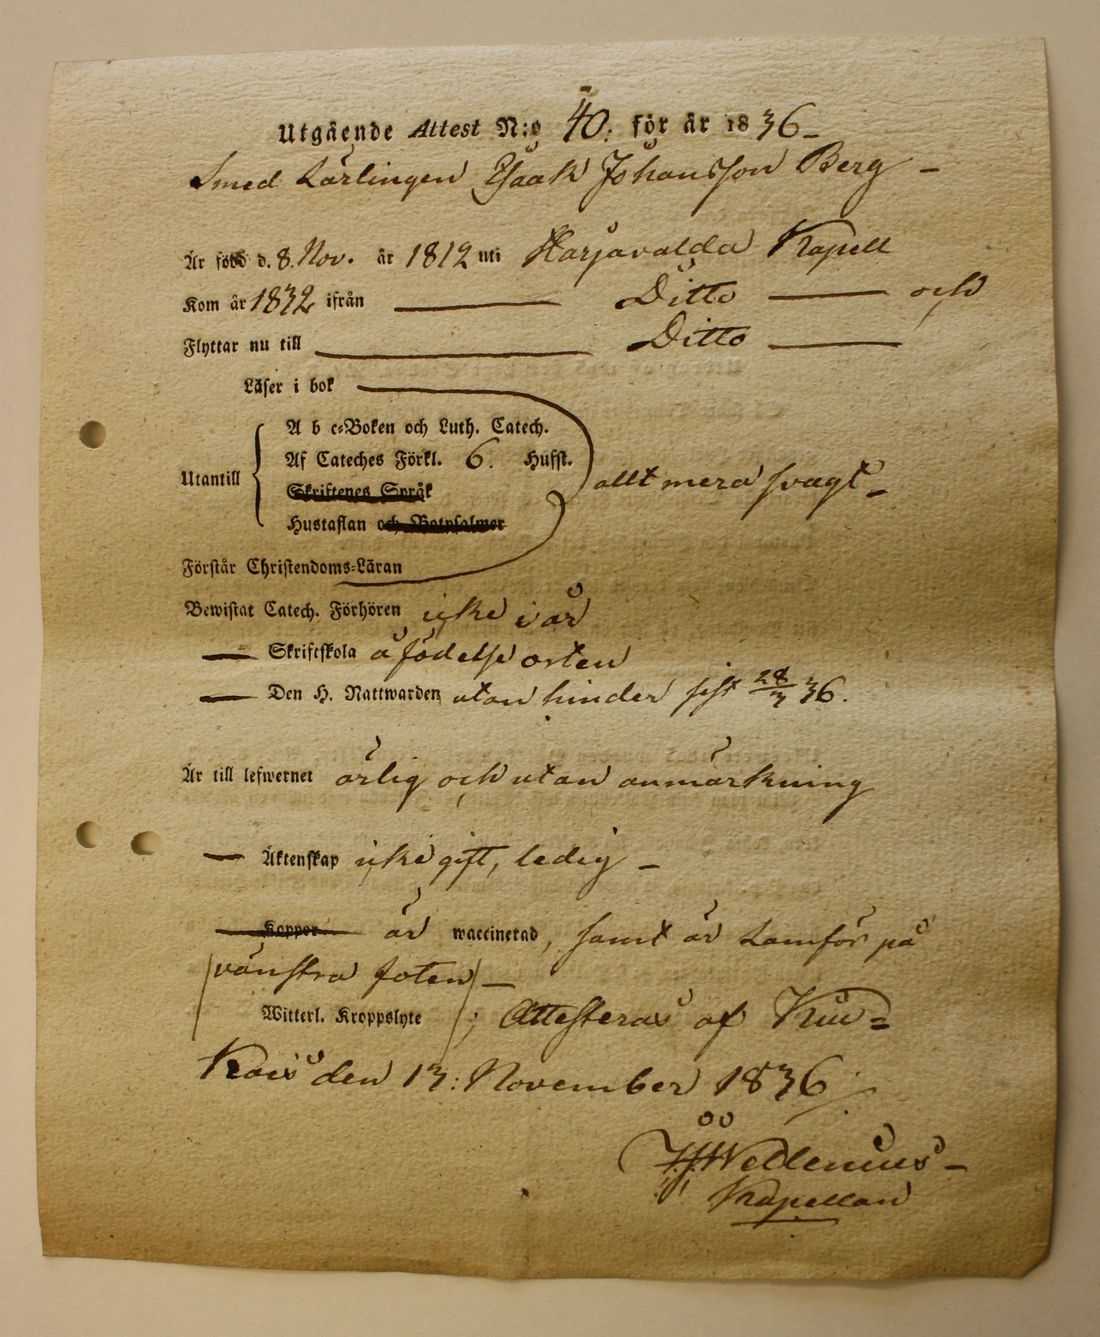 Utgående Attest N:o 40. för år 1836
Smed Lärlingen Isaak Johansson Berg
Är född d. 8. Nov. år 1812 uti Harjavalda Kapell
Kom år 1832 ifrån Ditto och
Flyttar nu till Ditto
Läser i bok
A b c=Boken och Luth. Catech.
Af Cateches Förkl. 6. Husst.
Utantill allt mera svagt
Skriftenes Språk
Hustaflan och Botpsalmer
Förstår Christendoms=Läran
Bewistat Catech. Förhören icke i år
— Skriftskola å födelse orten
— Den H. Nattwarden utan hinder sist 28/3 36.
Är till lefwernet ärlig och utan anmärkning
— Äktenskap icke gift, ledig
Koppor är waccinerad, samt är Lam för på
vänstra foten
Witterl. Kroppslyte ; Attesteras af Kiu=
kais den 13: November 1836
Wedlenius
Kapellan